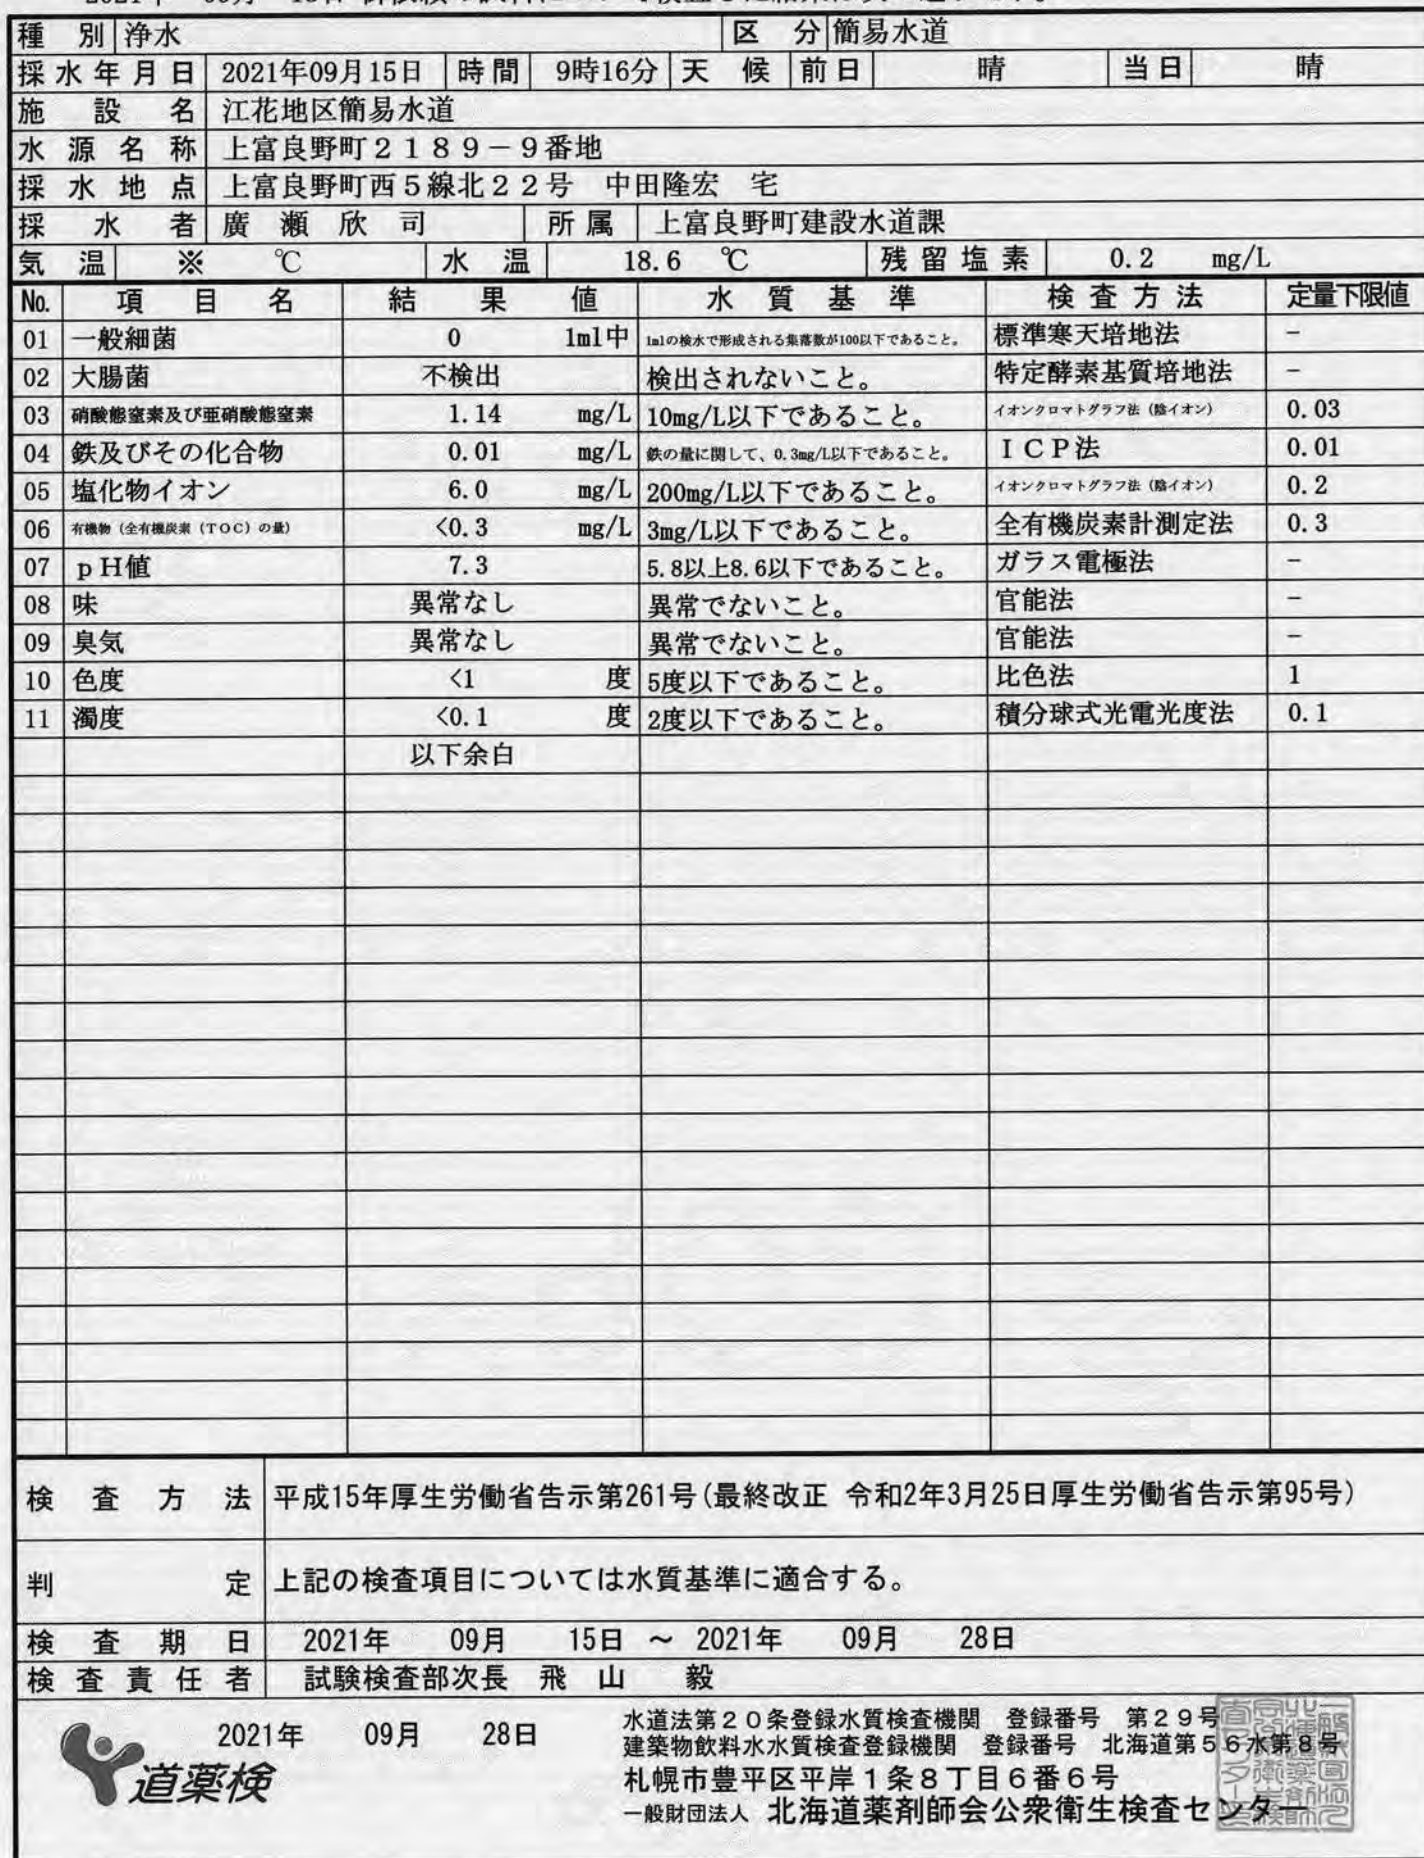 種別 浄水 区分 簡易水道
採水年月日 2021年09月15日 時間 9時16分 天候 前日 晴 当日 晴
施設名 江花地区簡易水道
水源名称 上富良野町2189-9番地
採水地点 上富良野町西5線北22号 中田隆宏 宅
採水者 廣瀬欣司 所属 上富良野町建設水道課
気温 ※ ℃ 水温 18.6 ℃ 残留塩素 0.2 mg/L
No. 項目名 結果値 水質基準 検査方法 定量下限値
01 一般細菌 0 1ml中 1mlの検水で形成される集落数が100以下であること。 標準寒天培地法 -
02 大腸菌 不検出 検出されないこと。 特定酵素基質培地法 -
03 硝酸態窒素及び亜硝酸態窒素 1.14 mg/L 10mg/L以下であること。 イオンクロマトグラフ法(陰イオン) 0.03
04 鉄及びその化合物 0.01 mg/L 鉄の量に関して、0.3mg/L以下であること。 ICP法 0.01
05 塩化物イオン 6.0 mg/L 200mg/L以下であること。 イオンクロマトグラフ法(陰イオン) 0.2
06 有機物(全有機炭素(TOC)の量) <0.3 mg/L 3mg/L以下であること。 全有機炭素計測定法 0.3
07 pH値 7.3 5.8以上8.6以下であること。 ガラス電極法 -
08 味 異常なし 異常でないこと。 官能法 -
09 臭気 異常なし 異常でないこと。 官能法 -
10 色度 <1 度 5度以下であること。 比色法 1
11 濁度 <0.1 度 2度以下であること。 積分球式光電光度法 0.1
以下余白
検査方法 平成15年厚生労働省告示第261号(最終改正 令和2年3月25日厚生労働省告示第95号)
判定 上記の検査項目については水質基準に適合する。
検査期日 2021年 09月 15日 ~ 2021年 09月 28日
検査責任者 試験検査部次長 飛山 毅
2021年 09月 28日
道薬検
水道法第20条登録水質検査機関 登録番号 第29号
建築物飲料水水質検査登録機関 登録番号 北海道第56水第8号
札幌市豊平区平岸1条8丁目6番6号
一般財団法人 北海道薬剤師会公衆衛生検査センター